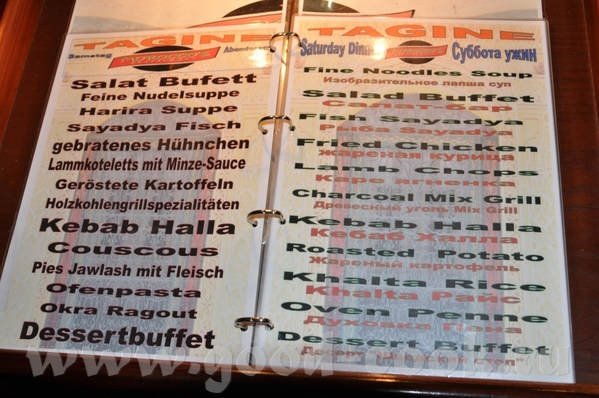 TAGINE
Samstag
Salat Bufett
Feine Nudelsuppe
Harira Suppe
Sayadya Fisch
gebratenes Hühnchen
Lammkoteletts mit Minze-Sauce
Geröstete Kartoffeln
Holzkohlengrillspezialitäten
Kebab Halla
Couscous
Pies Jawlash mit Fleisch
Ofenpasta
Okra Ragout
Dessertbuffet
TAGINE
Saturday Dinner
Суббота ужин
Fine Noodles Soup
Изобразительное лапша суп
Salad Buffet
Салат-бар
Fish Sayadya
Рыба Sayadya
Fried Chicken
Жареная курица
Lamb Chops
Каре ягненка
Charcoal Mix Grill
Древесный уголь Mix Grill
Kebab Halla
Кебаб Халла
Roasted Potato
Жареный картофель
Khalta Rice
Khalta Райс
Oven Penne
Духовка Пена
Dessert Buffet